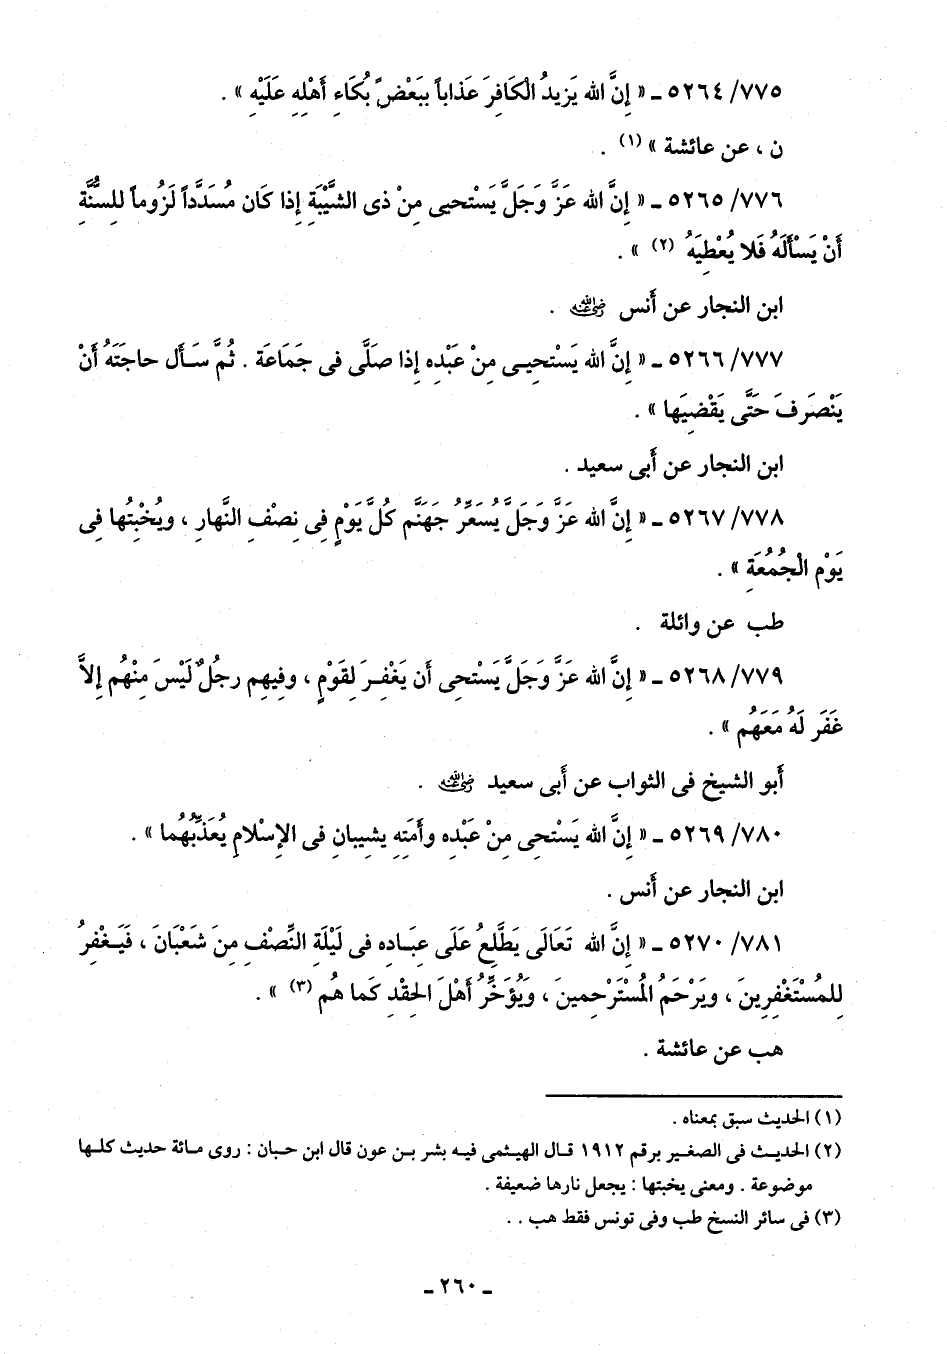 ٧٧٥/ ٥٢٦٤ ـ « إِنَّ الله يَزِيدُ الْكَافِرَ عَذَاباً بِبَعْضِ بُكَاءِ أَهْلِهِ عَلَيْهِ » .
ن ، عن عائشة » (١) .
٧٧٦/ ٥٢٦٥ ـ « إِنَّ الله عَزَّ وَجَلَّ يَسْتَحيى مِنْ ذى الشَّيْبَةِ إِذا كَان مُسَدَّداً لَزُوماً للسُّنَّةِ
أَنْ يَسْأَلَهُ فَلا يُعْطِيَهُ (٢) » .
ابن النجار عن أَنس رضي الله عنه .
٧٧٧/ ٥٢٦٦ ـ « إِنَّ الله يَسْتَحيِـى مِنْ عَبْدِه إِذا صَلَّى فى جَمَاعَة . ثُمَّ سَـأَل حاجَتَهُ أَنْ
يَنْصَرِفَ حَتَّى يَقْضِيَها » .
ابن النجار عن أَبى سعيد .
٧٧٨/ ٥٢٦٧ ـ « إِنَّ الله عَزَّ وَجَلَّ يُسَعِّرُ جَهَنَّم كُلَّ يَوْمٍ فِى نِصْفِ النَّهارِ ، ويُخْبِتُها فِى
يَوْمِ الْجُمُعَةِ » .
طب عن واثلة .
٧٧٩/ ٥٢٦٨ ـ « إِنَّ الله عَزَّ وَجَلَّ يَسْتَحِى أَن يَغْفِـرَ لِقَوْمٍ ، وفِيهِم رجُلٌ لَيْسَ مِنْهُم إِلاَّ
غَفَر لَهُ مَعَهُم » .
أَبو الشيخ فى الثواب عن أَبى سعيد رضي الله عنه .
٧٨٠/ ٥٢٦٩ ـ « إِنَّ الله يَسْتَحِى مِنْ عَبْدِه وأَمَتِهِ يشِيبانِ فى الإِسْلامِ يُعَذِّبُهُما » .
ابن النجار عن أَنس .
٧٨١/ ٥٢٧٠ ـ « إِنَّ الله تَعَالَى يَطَّلِعُ عَلَى عِبَـادِه فى لَيْلَةِ النِّصْفِ مِنَ شَعْبَانَ ، فَيَـغْفِرُ
لِلمُسْتَغْفِرِينَ ، ويَرْحَمُ المُسْتَرْحِمينَ ، وَيُؤَخِّرُ أَهْلَ الحِقْدِ كَما هُم (٣) » .
هب عن عائشة .
(١) الحديث سبق بمعناه .
(٢) الحديـث فى الصغيـر برقم ١٩١٢ قـال الهيثمى فيـه بشر بـن عون قال ابن حبـان : روى مـائة حديث كلـها
موضوعة . ومعنى يخبتها : يجعل نارها ضعيفة .
(٣) فى سائر النسخ طب وفى تونس فقط هب . .
ـ ٢٦٠ ـ